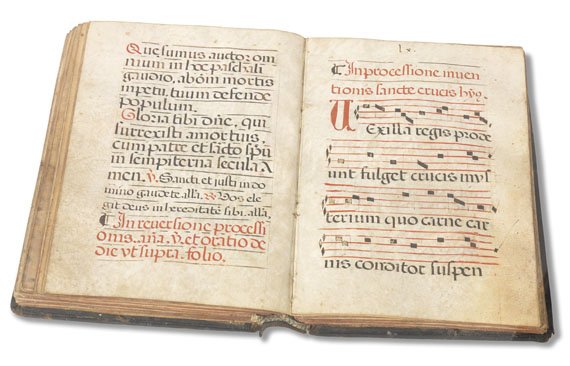 Quesumus auctor om
nium in hoc paschali
gaudio, ab om̄i mortis
impetu tuum defende
populum.
Gloria tibi dn̄e, qui
surrexisti a mortuis,
cum patre et sacto sp̄u
in sempiterna secula A
men. ℣. Sancti et justi in do
mino gaudete. alľa. ℟. Vos ele
git deus in hereditatē sibi. alľa.
¶ In reversione processi
onis. aña. ℣. et oratio de
die vt supra. folio.
lx.
¶ In processione inven
tionis sancte crucis hyꝰ.
VExilla regis prode
unt fulget crucis mys
terium quo carne car
nis conditor suspen